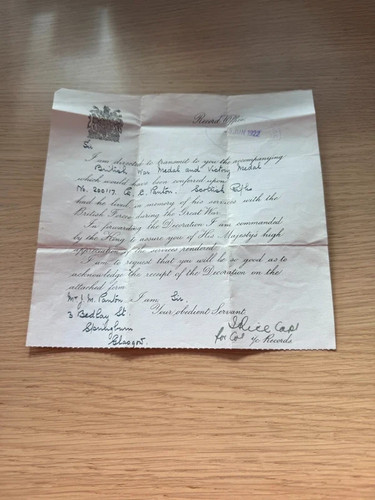 Record Office
JUN 1922
Sir
I am directed to transmit to you the accompanying
British War Medal and Victory Medal
which would have been conferred upon
No. 200117. C. C. Panton. Scottish Rifles
had he lived in memory of his services with the
British Forces during the Great War.
In forwarding the Decoration I am commanded
by the King to assure you of His Majesty's high
appreciation of the services rendered.
I am to request that you will be so good as to
acknowledge the receipt of the Decoration on the
attached form
Mr J. M. Panton. I am Sir,
3 Bedlay St Your obedient Servant
Springburn
Glasgow. Capt
for Col i/c Records